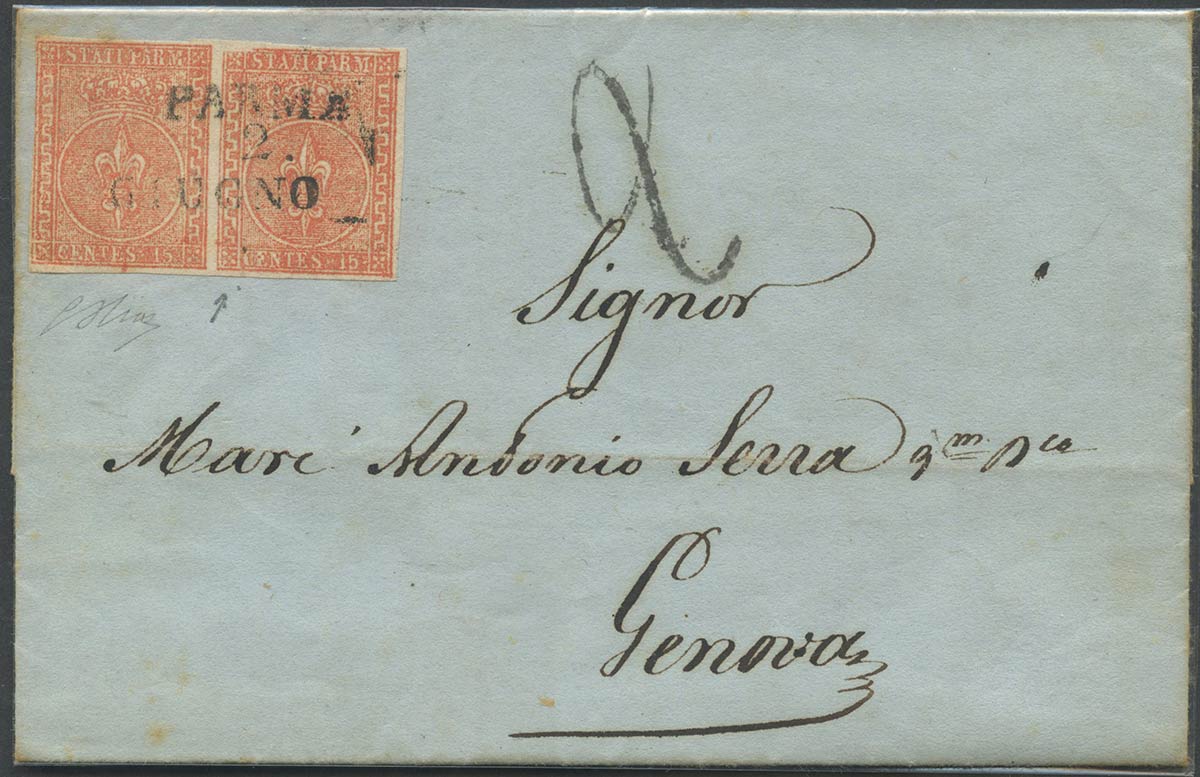 STATI PARM. STATI PARM.
PARMA
2.
GIUGNO
CENTES. 15 CENTES. 15
2
Signor
Marc' Antonio Serra q.m
Genova